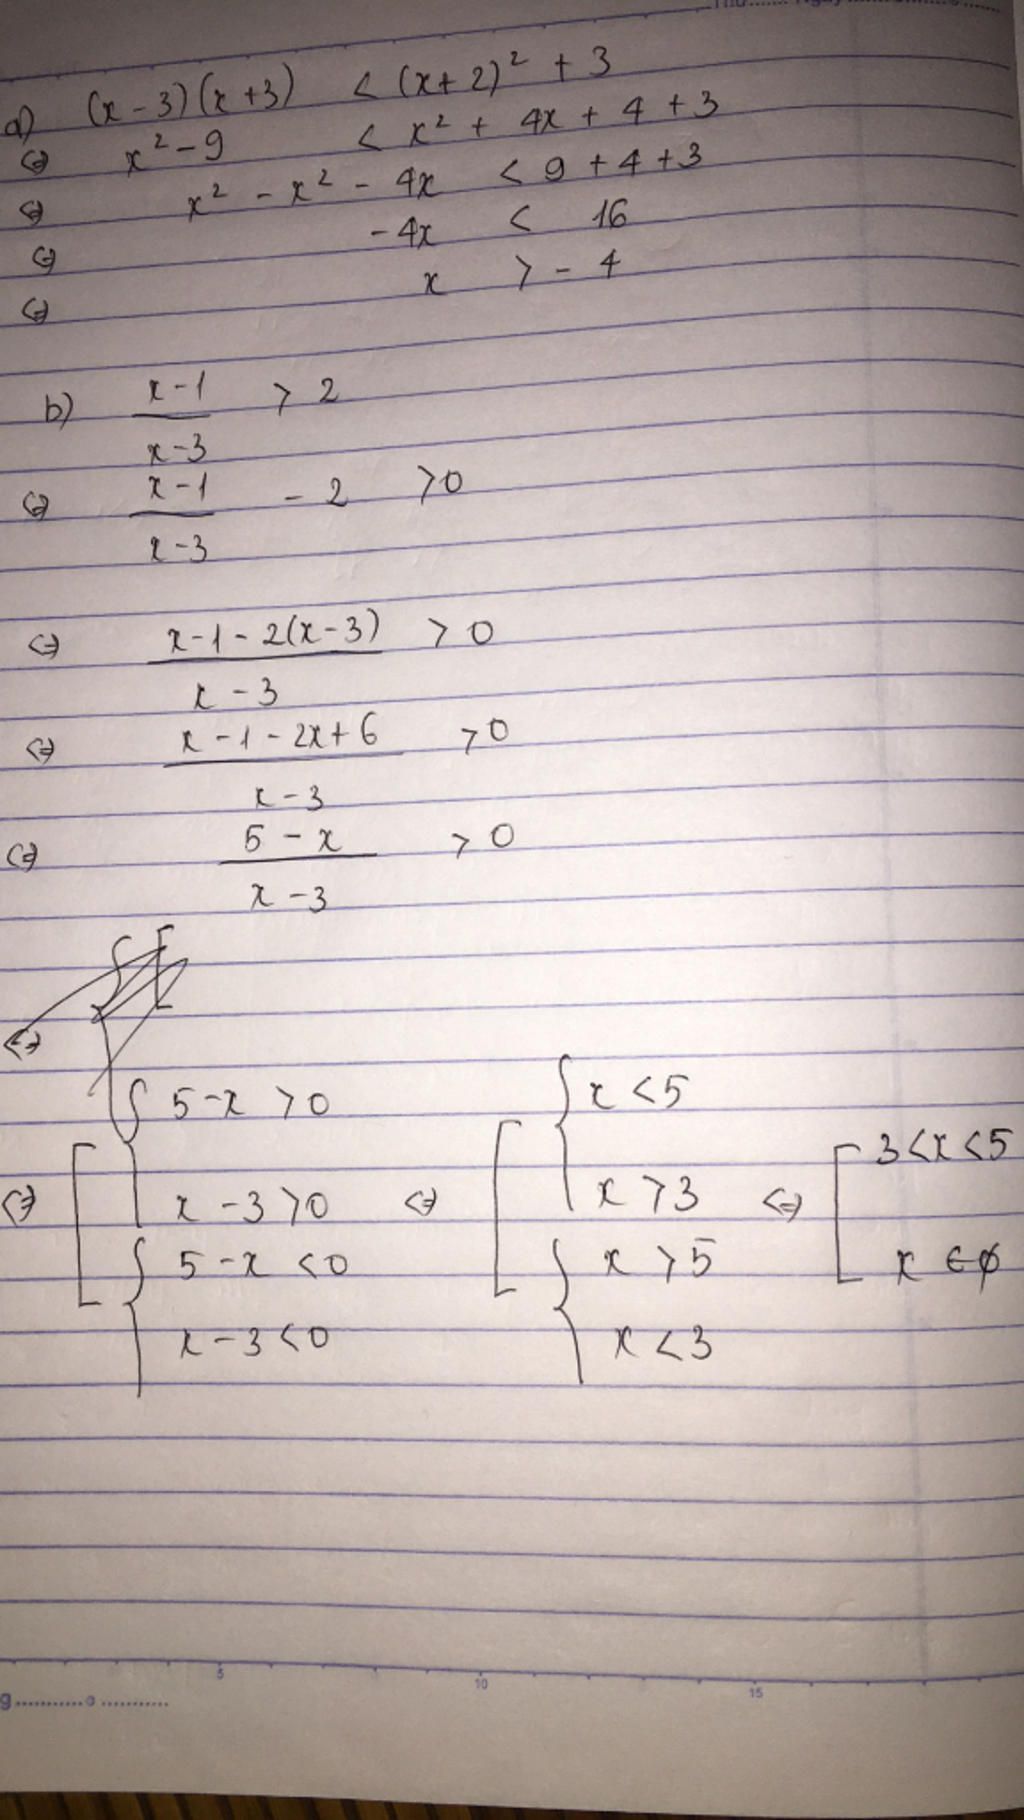 a) (x - 3)(x + 3) < (x + 2)² + 3
⇔ x² - 9 < x² + 4x + 4 + 3
⇔ x² - x² - 4x < 9 + 4 + 3
⇔ -4x < 16
⇔ x > -4
b) x-1 / x-3 > 2
⇔ x-1 / x-3 - 2 > 0
⇔ x-1-2(x-3) / x-3 > 0
⇔ x-1-2x+6 / x-3 > 0
⇔ 5-x / x-3 > 0
⇔
⇔ [ { 5-x > 0 ; x-3 > 0 ; { 5-x < 0 ; x-3 < 0 ⇔ [ { x < 5 ; x > 3 ; { x > 5 ; x < 3 ⇔ [ 3 < x < 5 ; x ∈ ∅
5 10 15